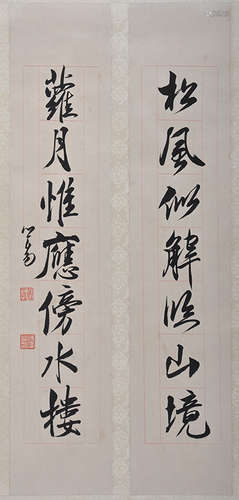 松風似解臨山境
蘿月惟應傍水樓
心畬